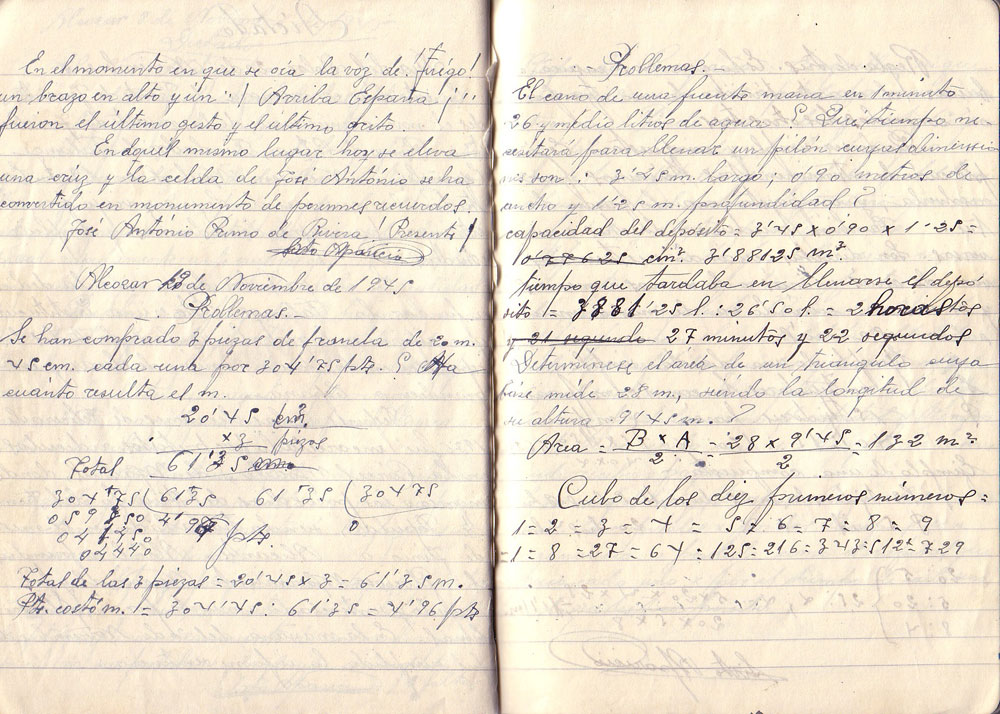 En el momento en que se oía la vóz de ¡Fuégo!
un brazo en alto y un: ¡Arriba España!
fueron el último gesto y el último grito.
En aquel mismo lugar hoy se eleva
una crúz y la celda de José António se ha
convertido en monumento de perennes recuerdos.
José António Primo de Rivera ¡Presente!
Aparicio
Alcozar 19 de Noviembre de 1945
Problemas.-
Se han comprado 3 piezas de franela de 20 m.
45 cm. cada una por 304'75 pts. ¿A
cuánto resulta el m.
20'45
x 3 piezas
Total 61'35
304'75 61'35 61'35 30475
059 350 4'96 pts. 0
04440
Total de las 3 piezas = 20'45 x 3 = 61'35 m.
Pts. costó m. = 304'45 : 61'35 = 4'96 pts
Problemas.-
El caño de una fuente mana en 1 minuto
26 y medio litros de agua. ¿Que tiempo ne-
cesitará para llenar un pilón cuyas dimensio-
nes son: 3'45 m. largo; 0'90 metros de
ancho y 1'25 m. profundidad?
capacidad del depósito = 3'45 x 0'90 x 1'25 =
3'88125 m³.
tiempo que tardaba en llenarse el depó-
sito = 3881'25 l. : 26'50 l. = 2 horas
y 27 minutos y 22 segundos
Determínese el área de un triangulo cuya
base mide 28 m., siendo la longitud de
su altura 9'45 m.?
Area = B x A / 2 = 28 x 9'45 / 2 = 132 m²
Cubo de los diez primeros números =
1 = 2 = 3 = 4 = 5 = 6 = 7 = 8 = 9
1 = 8 = 27 = 64 = 125 = 216 = 343 = 512 = 729